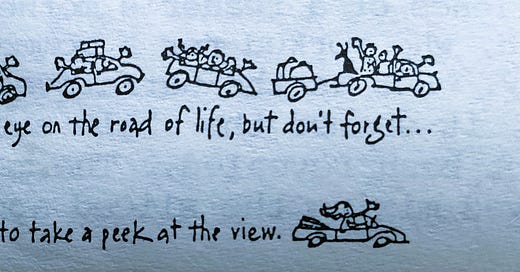 eye on the road of life, but don't forget...
to take a peek at the view.